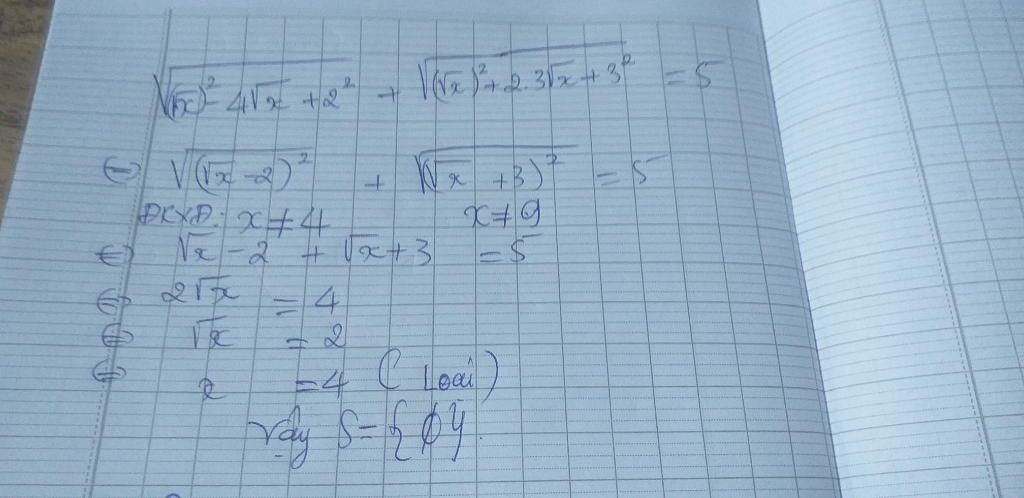 √((√x)² - 4√x + 2²) + √((√x)² + 2.3√x + 3²) = 5
⇔ √((√x - 2)²) + √((√x + 3)²) = 5
ĐKXĐ: x ≠ 4 x ≠ 9
⇔ √x - 2 + √x + 3 = 5
⇔ 2√x = 4
⇔ √x = 2
⇔ x = 4 (Loại)
Vậy S = {∅}.